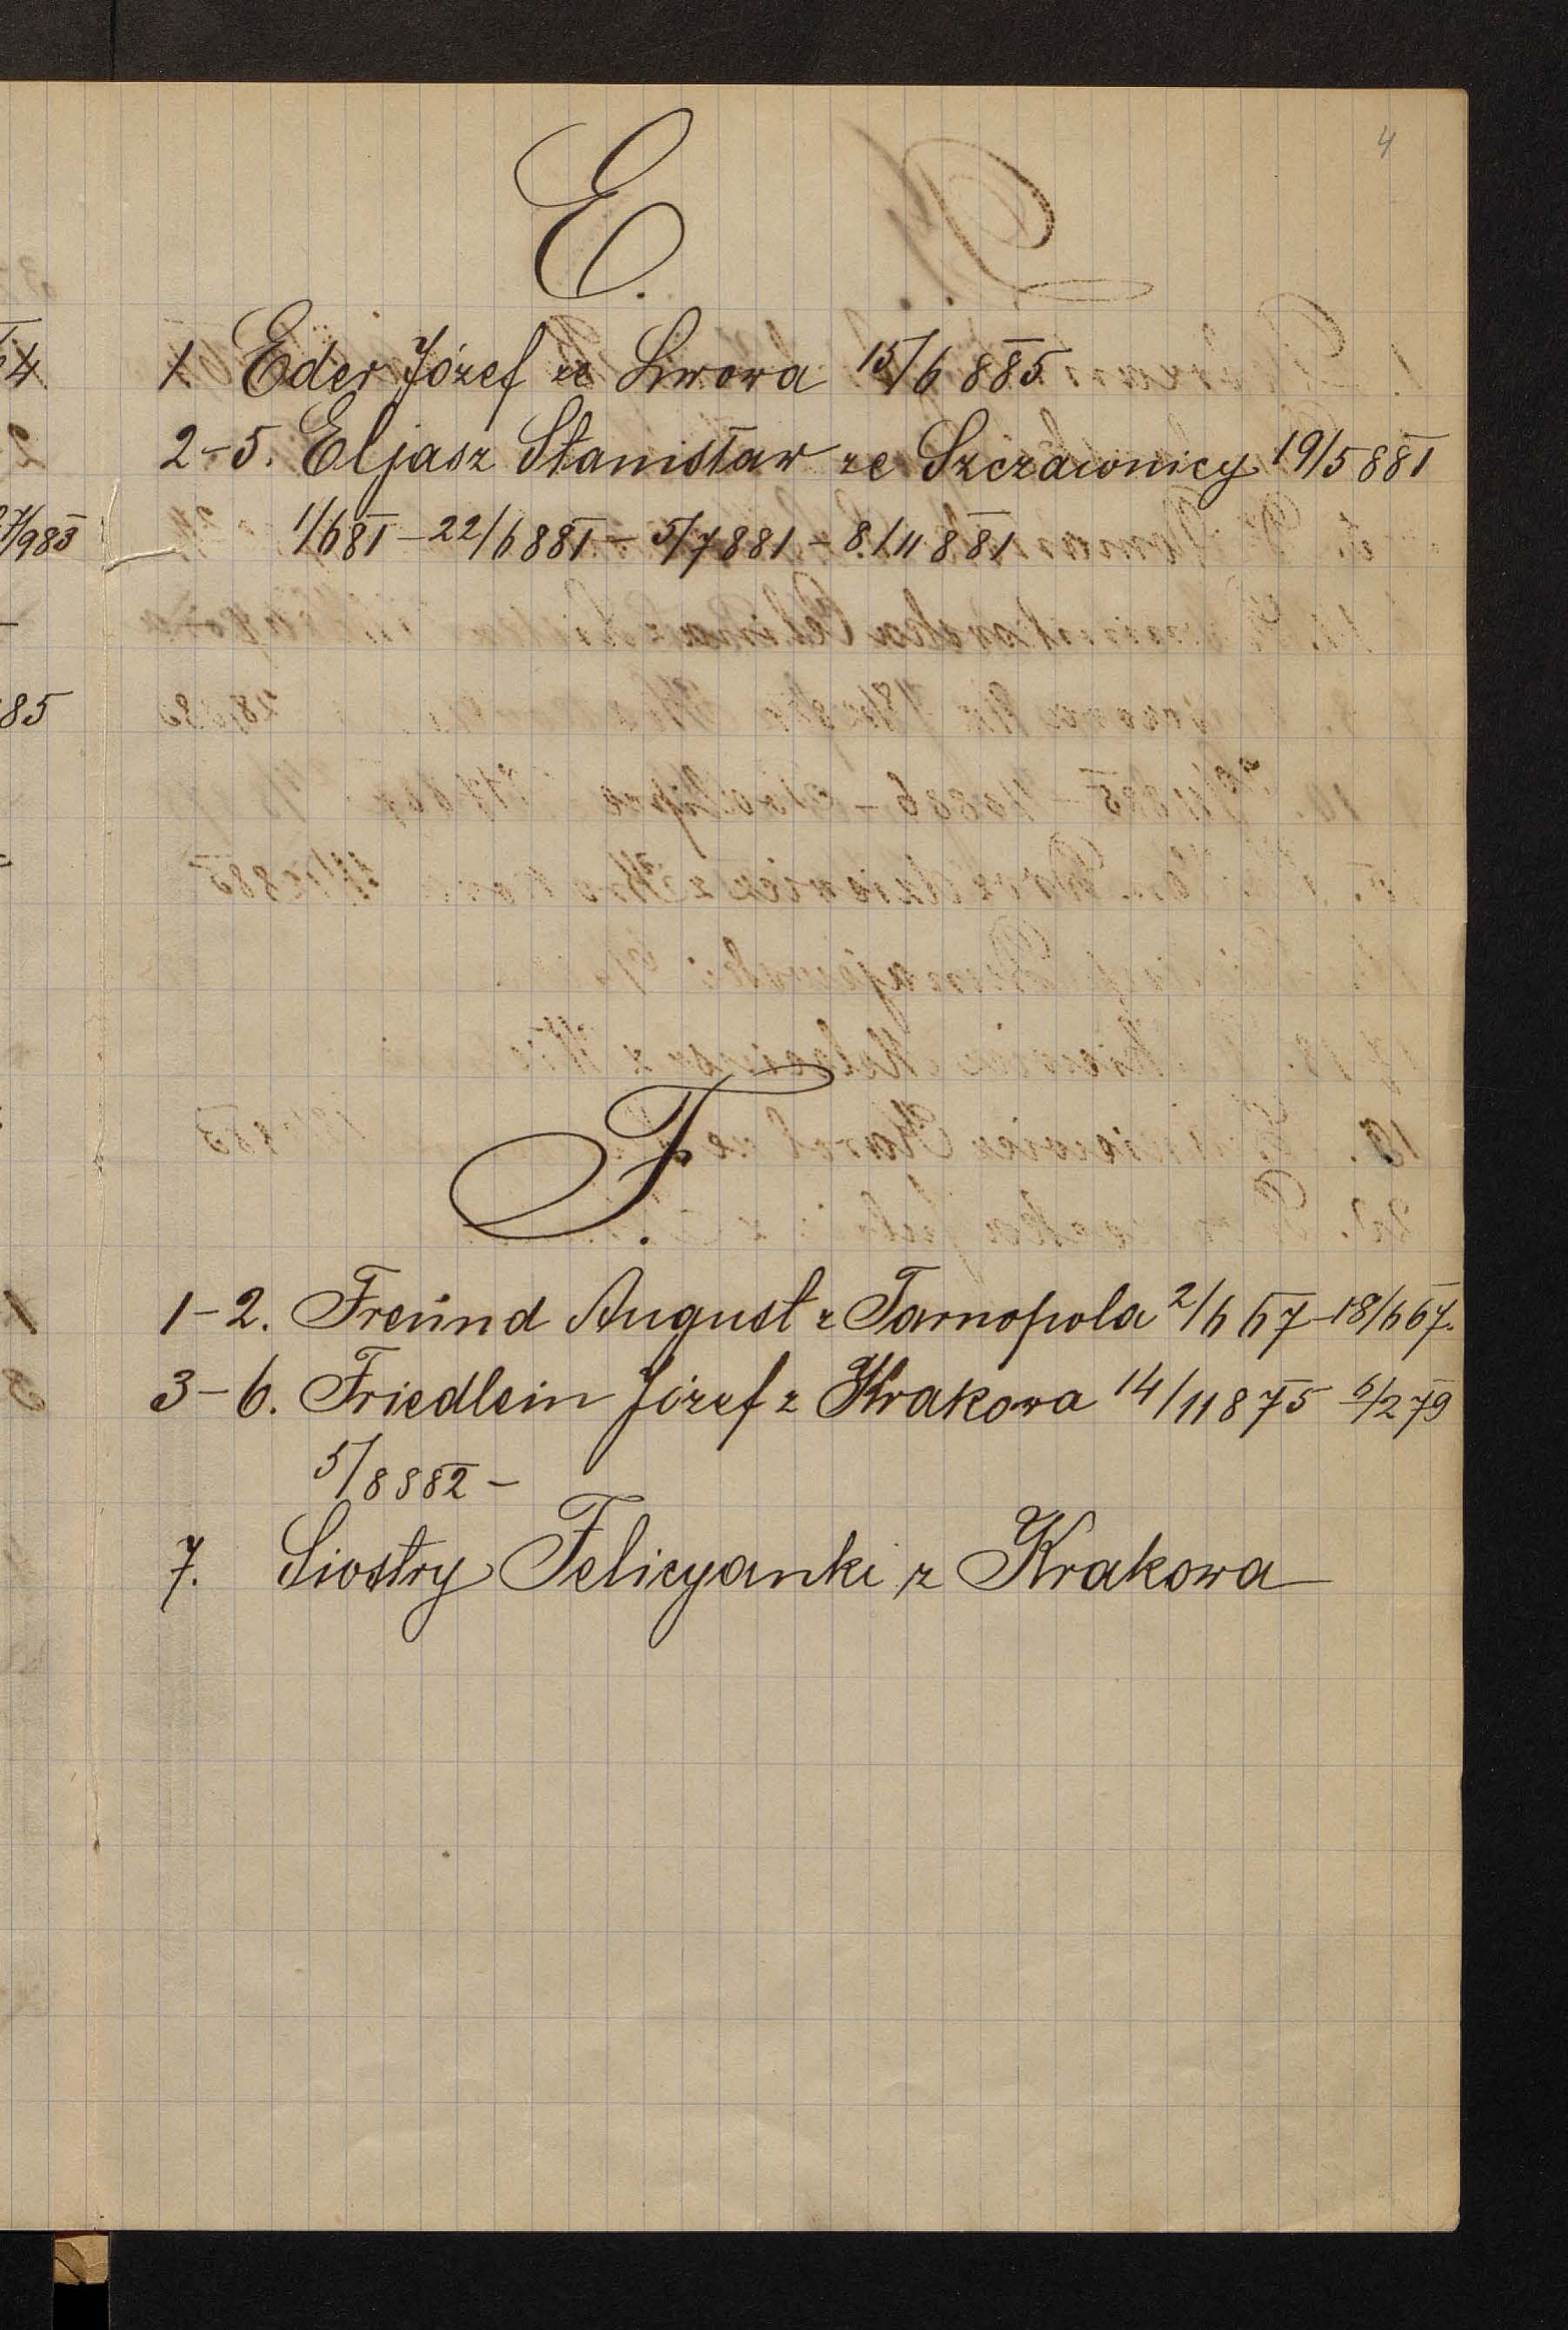 4
E.
1 Eder Józef ze Lwowa 15/6 885
2-5. Eljasz Stanisław ze Szczawnicy 19/5 881
1/6 81 - 22/6 881 - 5/7 881 - 8/11 881
F.
1-2. Freund August z Tarnopola 2/6 67 - 18/6 67.
3-6. Friedlein Józef z Krakowa 14/11 875 5/2 79
5/8 882 -
7. Siostry Felicyanki z Krakowa